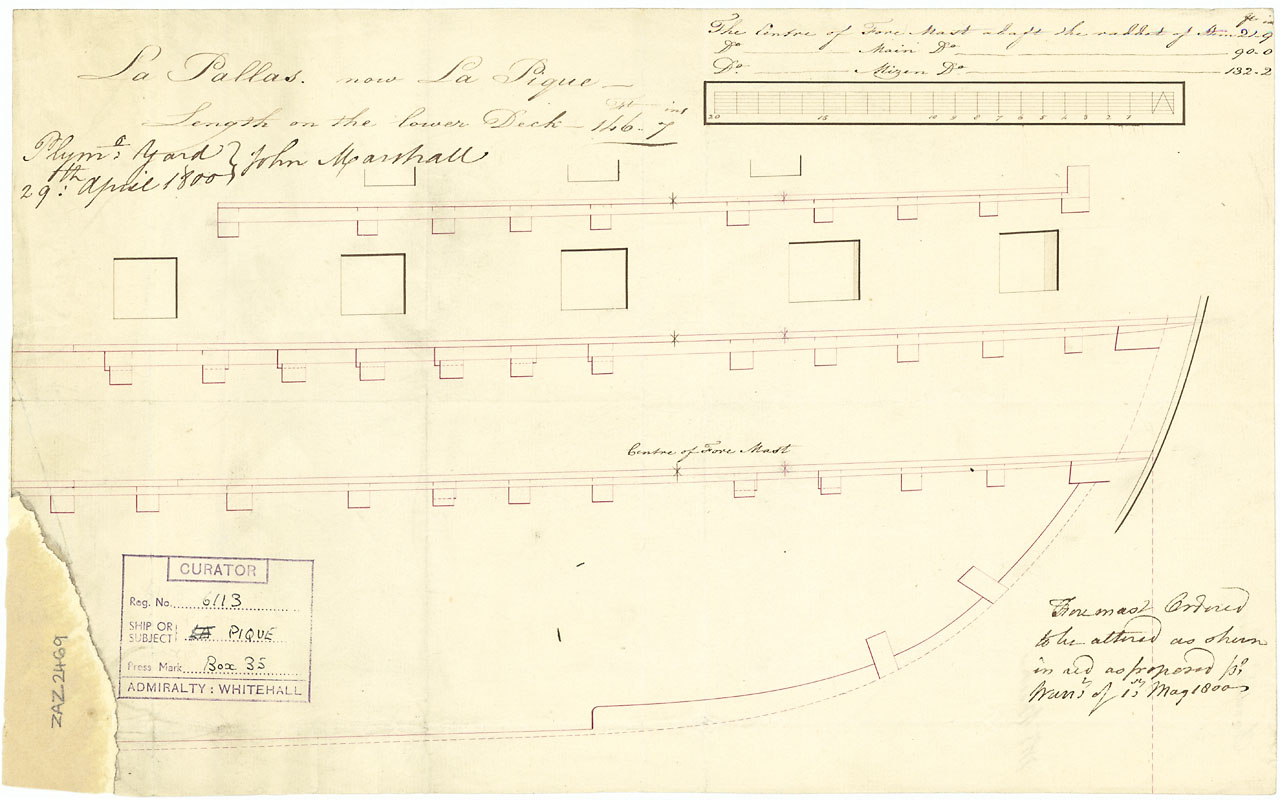 ft in
The Centre of Fore Mast abaft the rabbet of Stem 21..9
Do Main Do 90..0
Do. Mizen Do 132..2
La Pallas. now La Pique
Ft ins
Length on the lower Deck 146..7
Plymo. Yard } John Marshall
29th: April 1800
20 15 10 9 8 7 6 5 4 3 2 1
Centre of Fore Mast
CURATOR
Reg. No. 6113
SHIP OR SUBJECT } LA PIQUE
Press Mark Box 35
ADMIRALTY: WHITEHALL
ZAZ2469
Foremast Ordered
to be altered as shewn
in red as proposed pr.
Warrt. of 1st May 1800